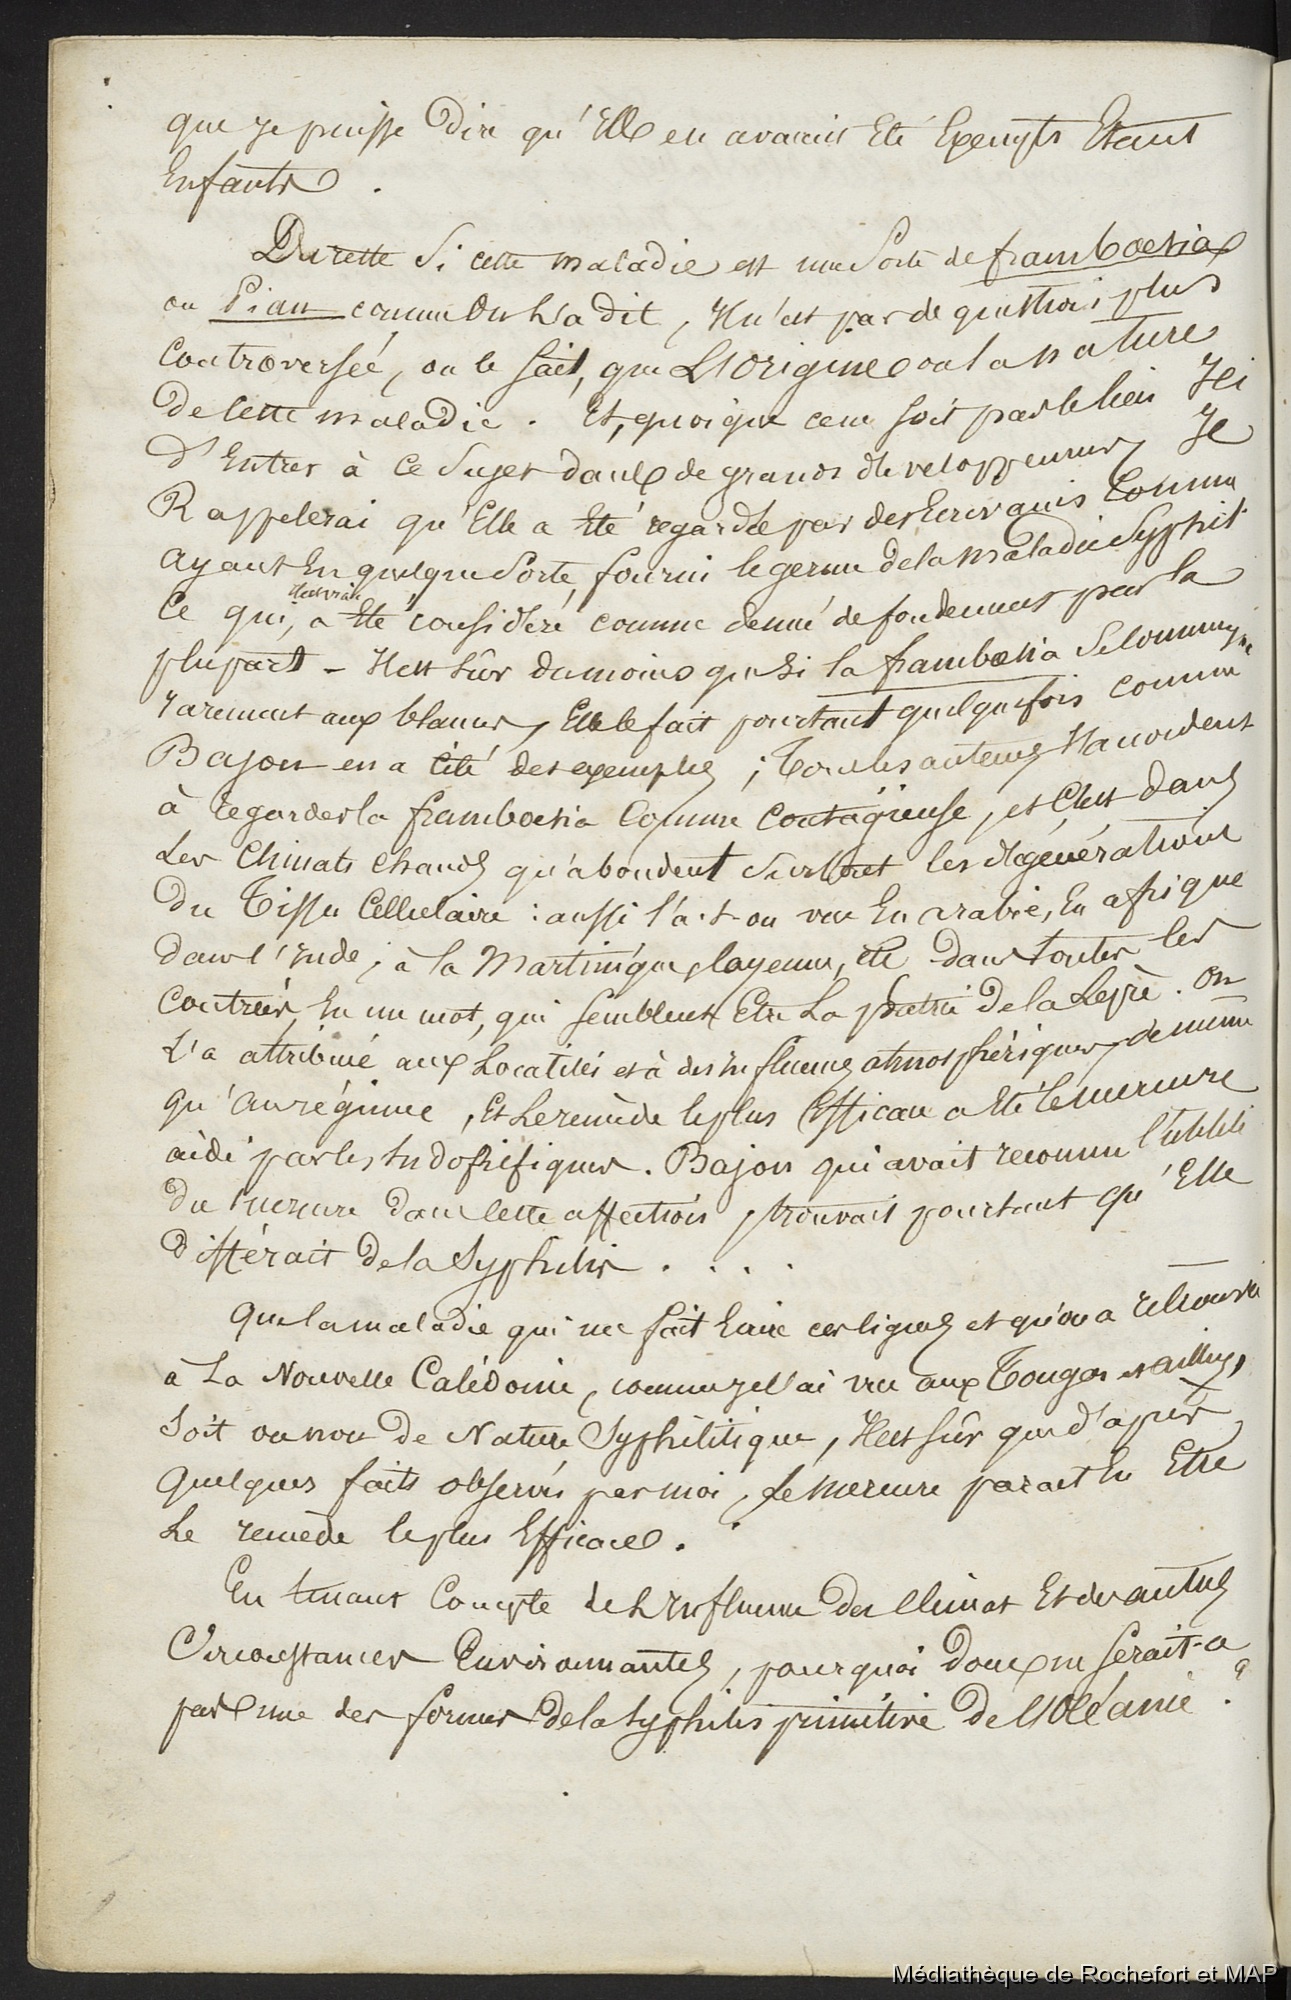 que je puisse dire qu'Elles en avaient Eté Exempts Etant
Enfants.
Du reste Si cette maladie est une Sorte de framboesia
ou Pian comme On L'a dit, Il n'est pas de questions plus
controversée, on le sait, que L'Origine ou la nature
de cette maladie. Et, quoique ce ne soit pas le lieu Ici
d'Entrer à ce Sujet dans de grands développemens, Je
Rappelerai qu'Elle a Eté regardée par des Ecrivains Comme
ayant En quelque Sorte, fourni le germe de la Maladie Syphilit.
Ce qui, il est vrai, a Eté considéré comme denué de fondement par la
plupart - Il est sûr du moins que Si la framboesia Se communique
rarement aux blancs, Elle le fait pourtant quelquefois comme
Bajon en a cité des exemples ; Tous les auteurs s'accordent
à regarder la framboesia Comme Contagieuse, et C'est dans
Les Climats chauds qu'abondent Surtout les dégénérations
du Tissu Cellulaire : aussi l'a-t-on vue En arabie, En afrique
dans l'Inde, à la Martinique, Cayenne, etc dans toutes les
Contrées, En un mot, qui semblent Etre La patrie de la Lèpre. On
L'a attribué aux Localités et à des Influences atmosphériques, de même
qu'au régime, Et Le remède le plus Efficace a Eté le mercure
aidé par les Sudorifiques. Bajon qui avait reconnu l'utilité
du mercure dans Cette affection, trouvait pourtant qu'Elle
différait de la Syphilis . . . .
Que la maladie qui me fait Ecrire ces lignes et qu'on a retrouvé
à La Nouvelle Calédonie, comme je l'ai vu aux Tongas et ailleurs,
Soit ou non de Nature Syphilitique, Il est sûr que d'après
quelques faits observés par moi, Le Mercure parait En Etre
Le remède le plus Efficace.
En tenant Compte de L'Influence des Climat Et des autres
Circonstances Environnantes, pourquoi donc ne serait-ce
pas une des formes de la Syphilis primitive de l'Océanie ?
Médiathèque de Rochefort et MAP